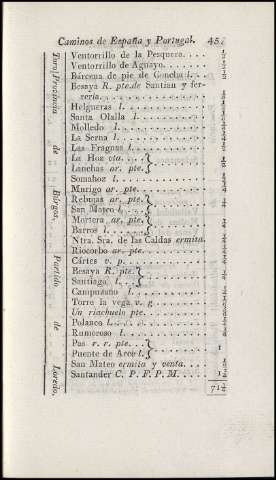 Caminos de España y Portugal. 45
Toro] Provincia de Búrgos, Partido de Laredo.
Ventorrillo de la Pesquera....
Ventorrillo de Aguayo.....
Bárcena de pie de Concha l...
Besaya R. pte. de Santian y fer-
rería.........
Helgueras l...........
Santa Olalla l..........
Molledo l............
La Serna l...........
Las Fraguas l..........
La Hoz vta....
Lanchas ar. pte.
Somahoz l............
Murigo ar. pte.........
Rebujas ar. pte.
San Mateo l....
Mortera ar. pte.
Barros l......
Ntra. Sra. de las Caldas ermita.
Riocorbo ar. pte........
Cártes v. p..........
Besaya R. pte.
Santiago l....
Campuzano l..........
Torre la vega v. g.......
Un riachuelo pte........
Polanco l............
Rumoroso l...........
Pas r. r. pte...
Puente de Arce l. 1
San Mateo ermita y venta....
Santander C. P. F. P. M..... 1